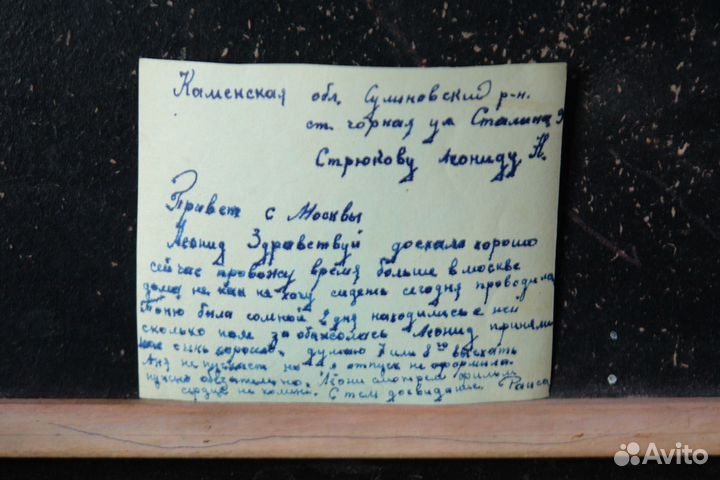 Каменская обл. Сулиновский р-н.
ст. горная ул Сталина 9
Стрюкову Леониду Н.
Привет с Москвы
Леонид Здравствуй доехала хорошо
сейчас провожу время больше в москве
дома не как не хочу сидеть сегодня проводила
Тоню была со мной 2 дня находились с ней
сколько Леонид приняли
хорошо. думаю 7 или 8го выехать
Аня не пускает но я отпуск не оформила.
нужно обезательно. Лёони смотрели фильм
сердце не камень. С тем досвидание Раиса
Avito